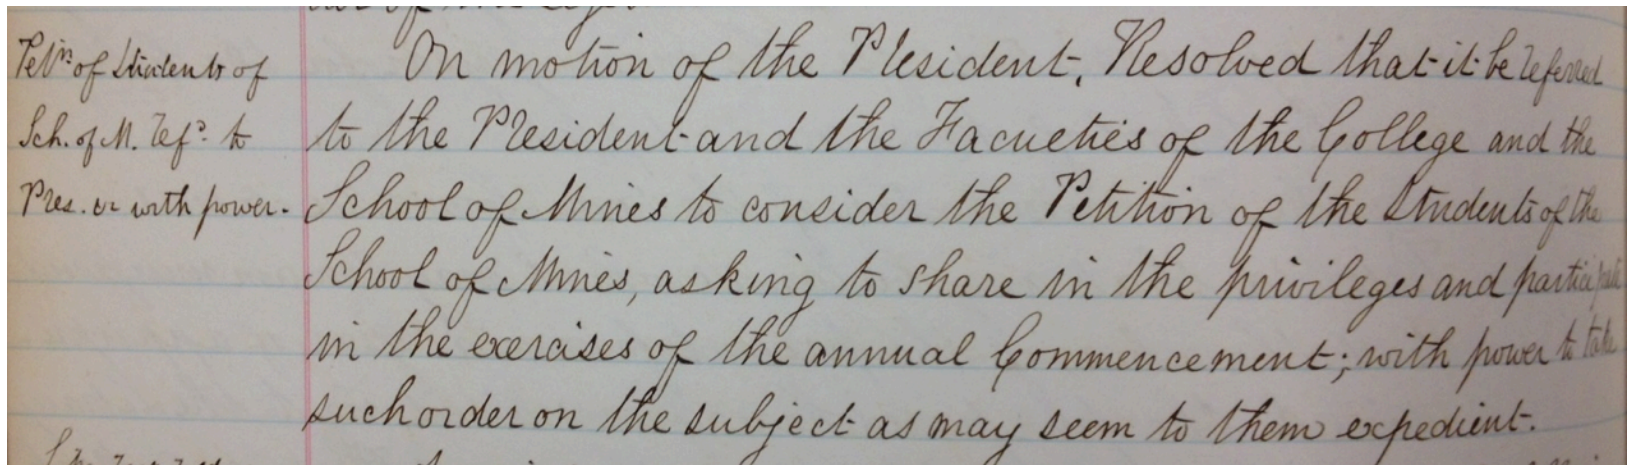 Petn. of Students of
Sch. of M. refd. to
Pres. &c with power.
On motion of the President, Resolved that it be referred
to the President and the Faculties of the College and the
School of Mines to consider the Petition of the Students of the
School of Mines, asking to share in the privileges and participate
in the exercises of the annual Commencement; with power to take
such order on the subject as may seem to them expedient.